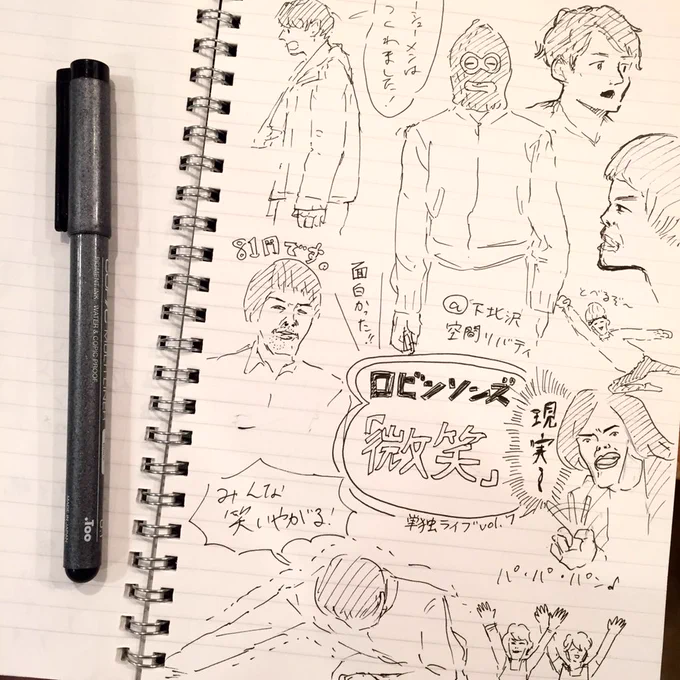 ーシューメンは
81円です。
面白かった!!
@下北沢
空間リバティ
とべるぞ〜
ロビンソンズ
「微笑」
単独ライブvol.7
現実〜
みんな
笑いやがる!
パ・パ・パン♪
PIGMENT INK, WATER & COPIC PROOF
.Too